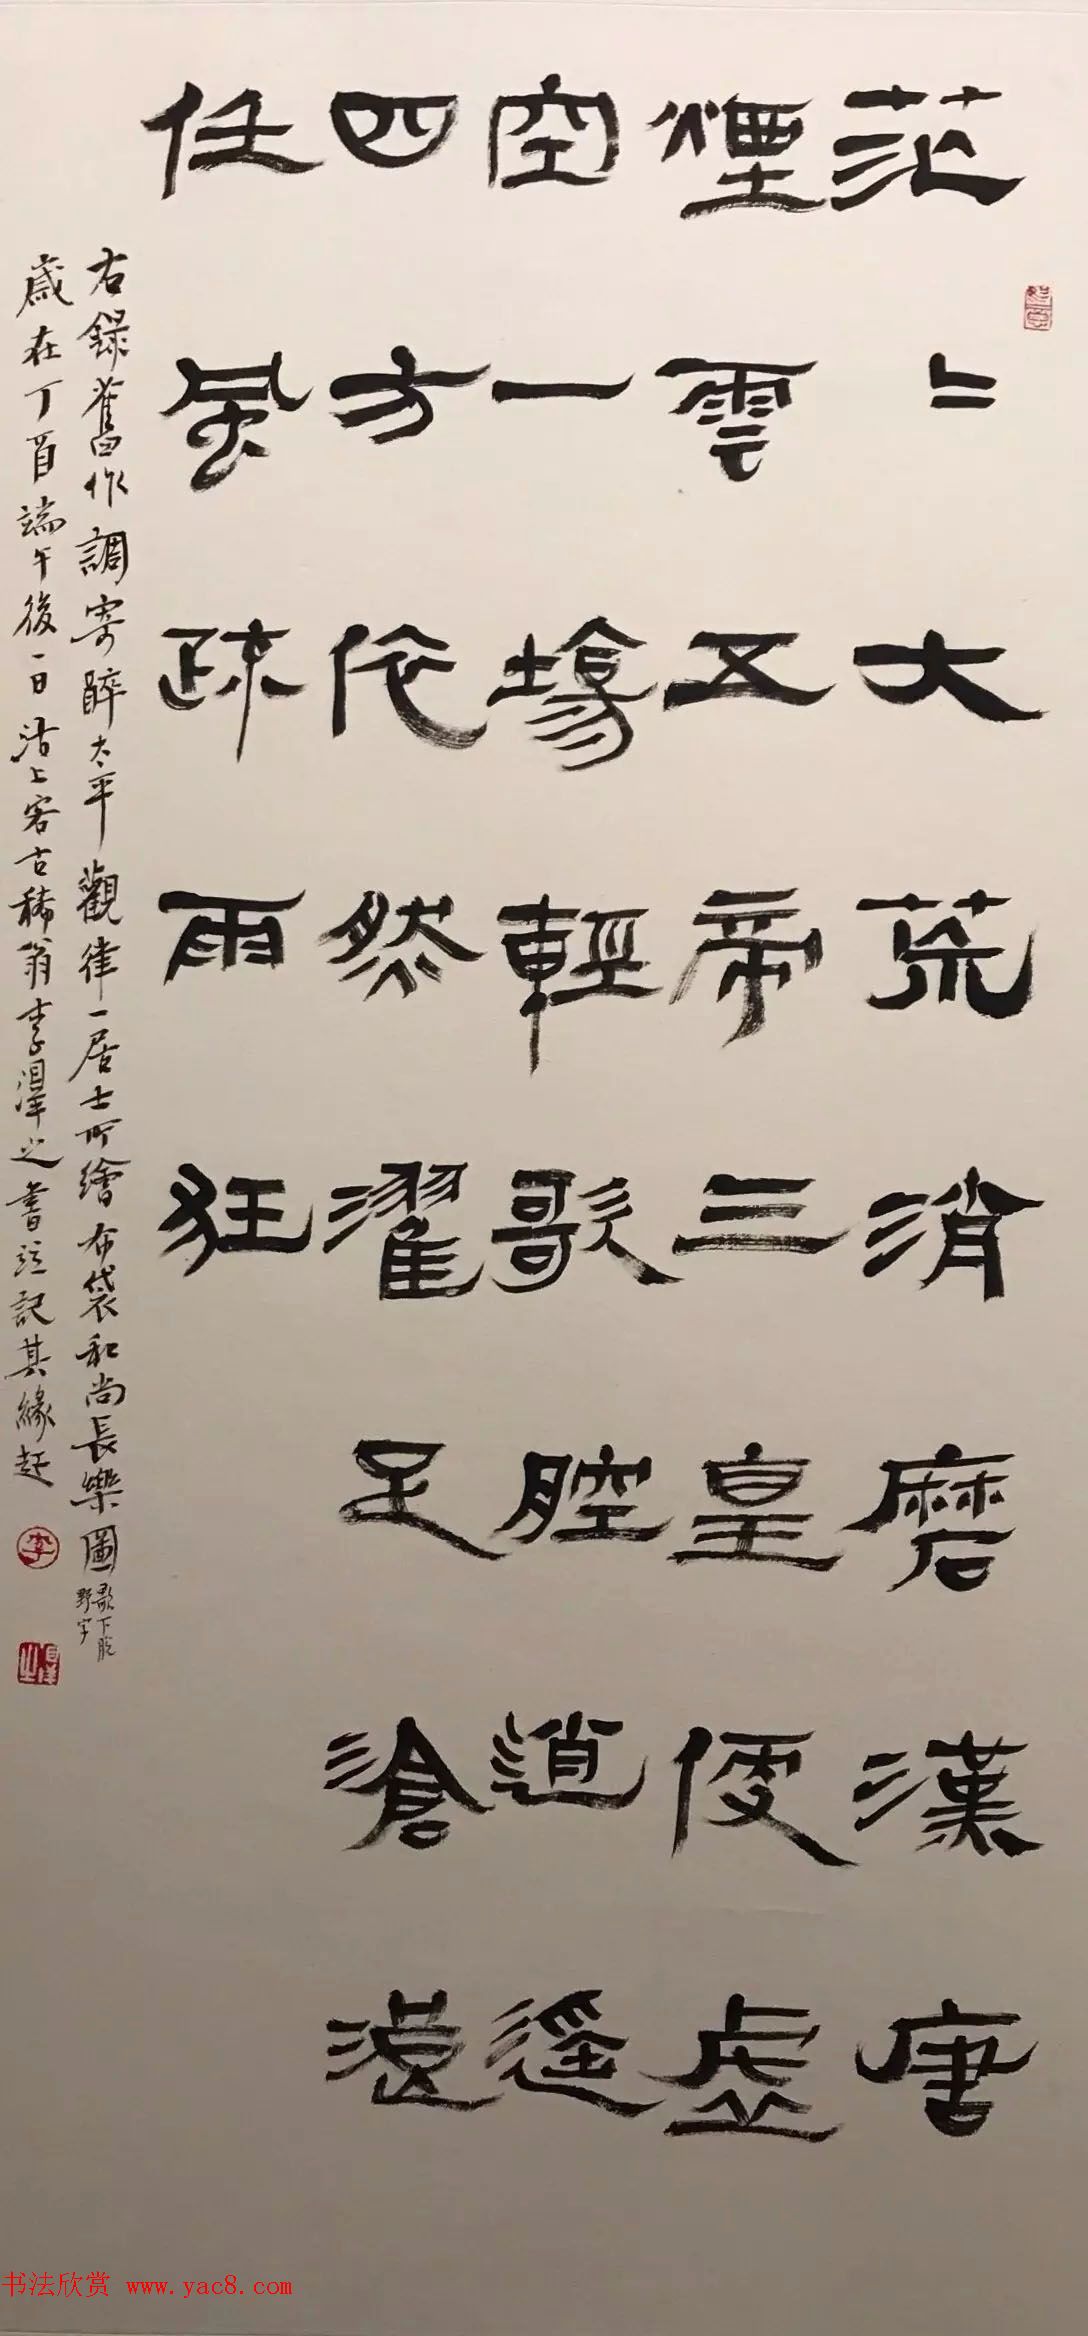 茫〻大荒消磨漢唐
煙雲五帝三皇便虛
空一場輕歌腔逍遥
四方依然濯足滄浪
任風疏雨狂
右錄舊作調寄醉太平觀律一居士所繪布袋和尚長樂圖
歌下脱
野字
歲在丁酉端午後一日沽上客古稀翁李澤之書並記其緣起
李
書法欣赏 www.yac8.com